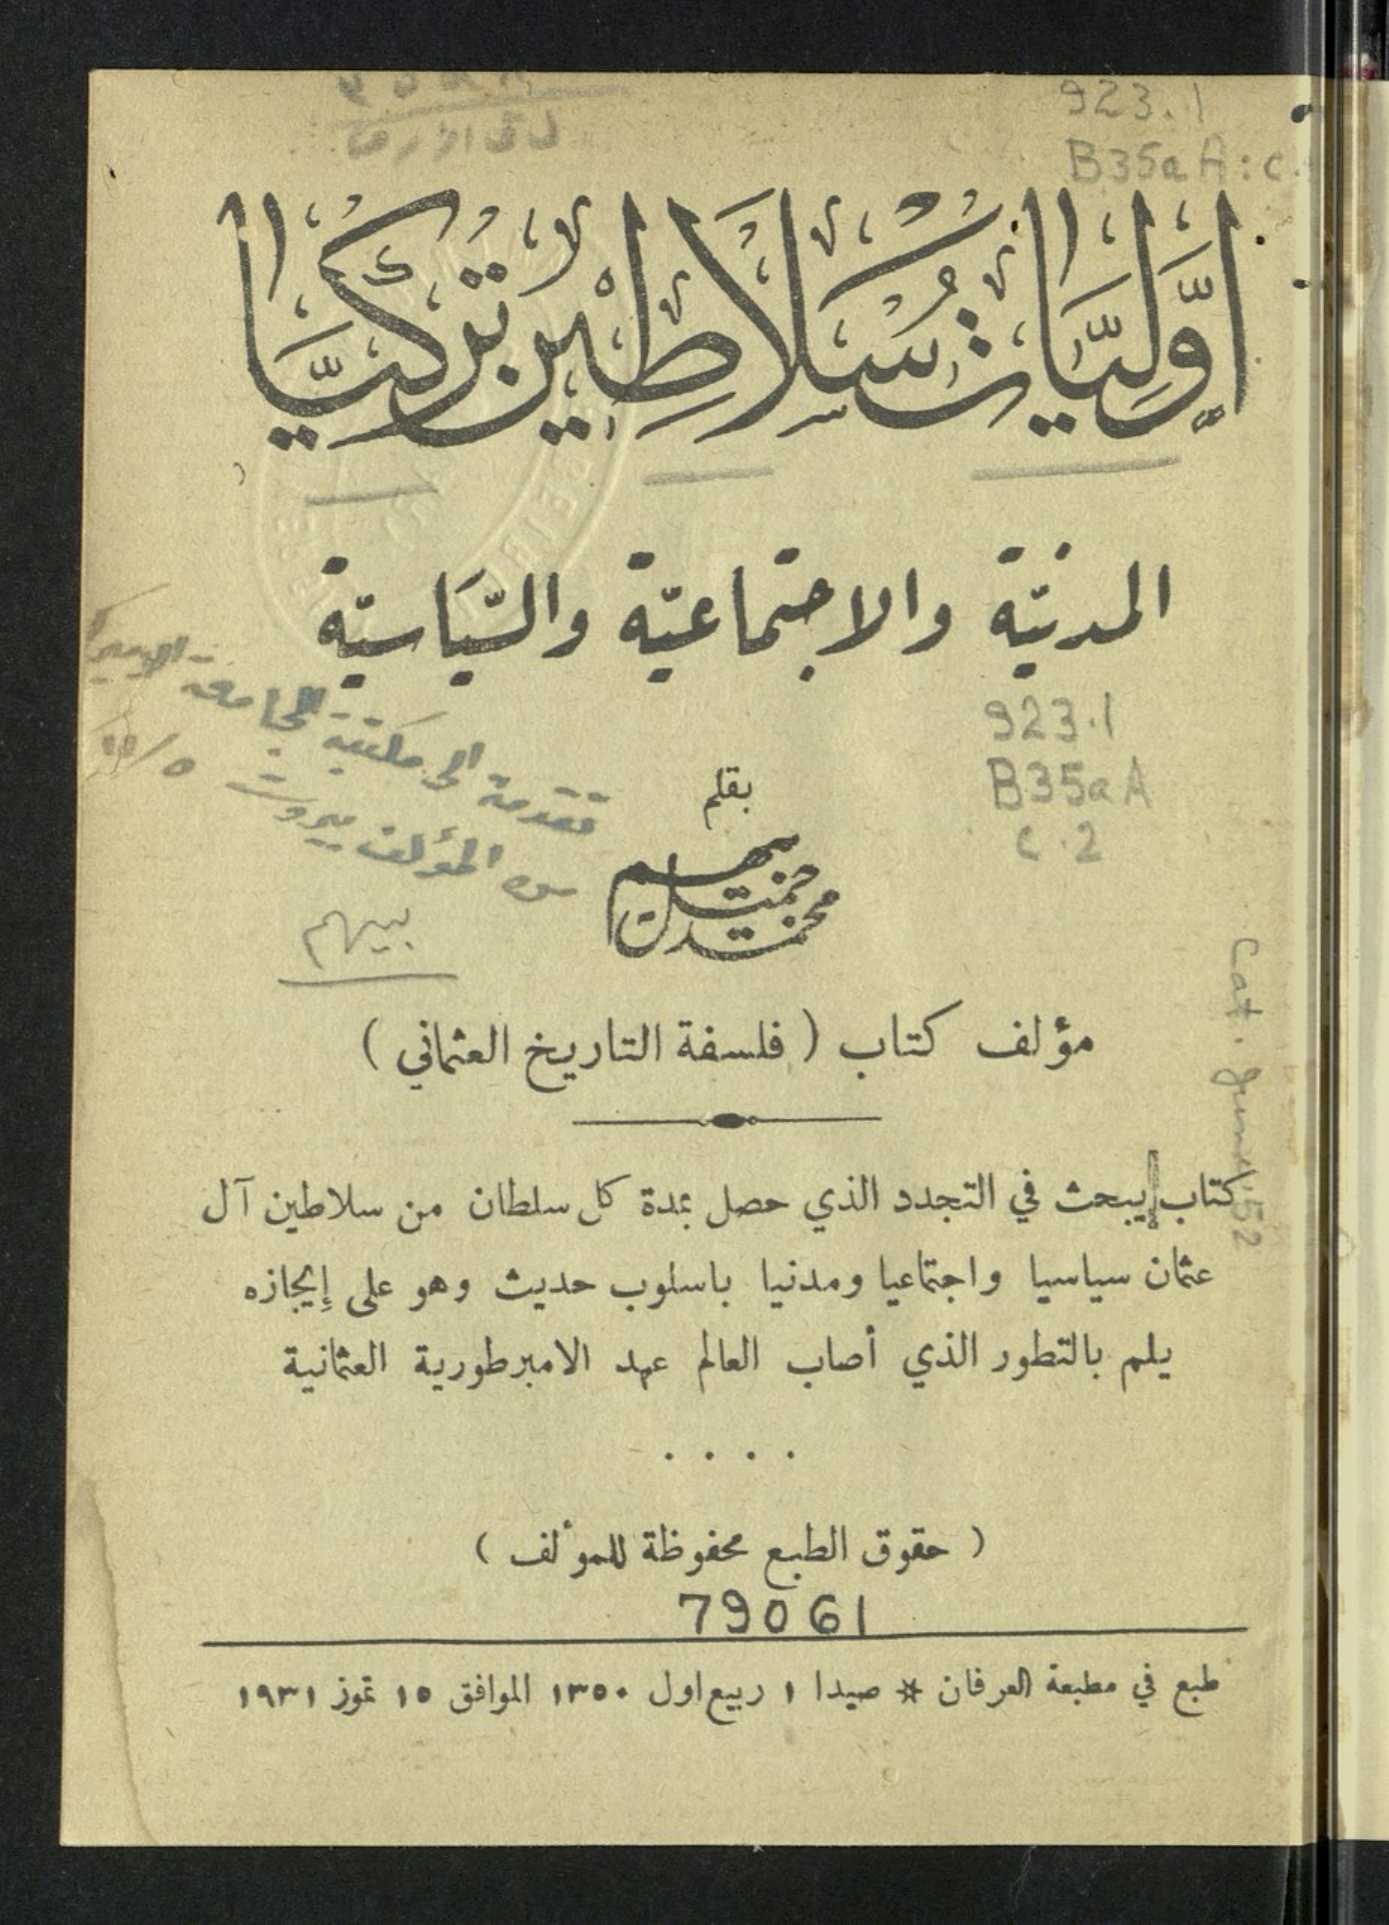 923.1
B35aA: c.
أوَّليَّات سَلاطِين تُركيَّا
المدنيّة والاجتماعيّة والسّيَاسيّة
تقدمة الى مكتبة الجامعة
من المؤلف بيروت
923.1
B35aA
c.2
بقلم
محمد جميل بيهم
بيهم
مؤلف كتاب ( فلسفة التاريخ العثماني )
Cat. June 52
كتاب يبحث في التجدد الذي حصل بمدة كل سلطان من سلاطين آل
عثمان سياسيا واجتماعيا ومدنيا باسلوب حديث وهو على إيجازه
يلم بالتطور الذي أصاب العالم عهد الامبرطورية العثمانية
. . . .
( حقوق الطبع محفوظة للمؤلف )
79061
طبع في مطبعة العرفان * صيدا ١ ربيع اول ١٣٥٠ الموافق ١٥ تموز ١٩٣١